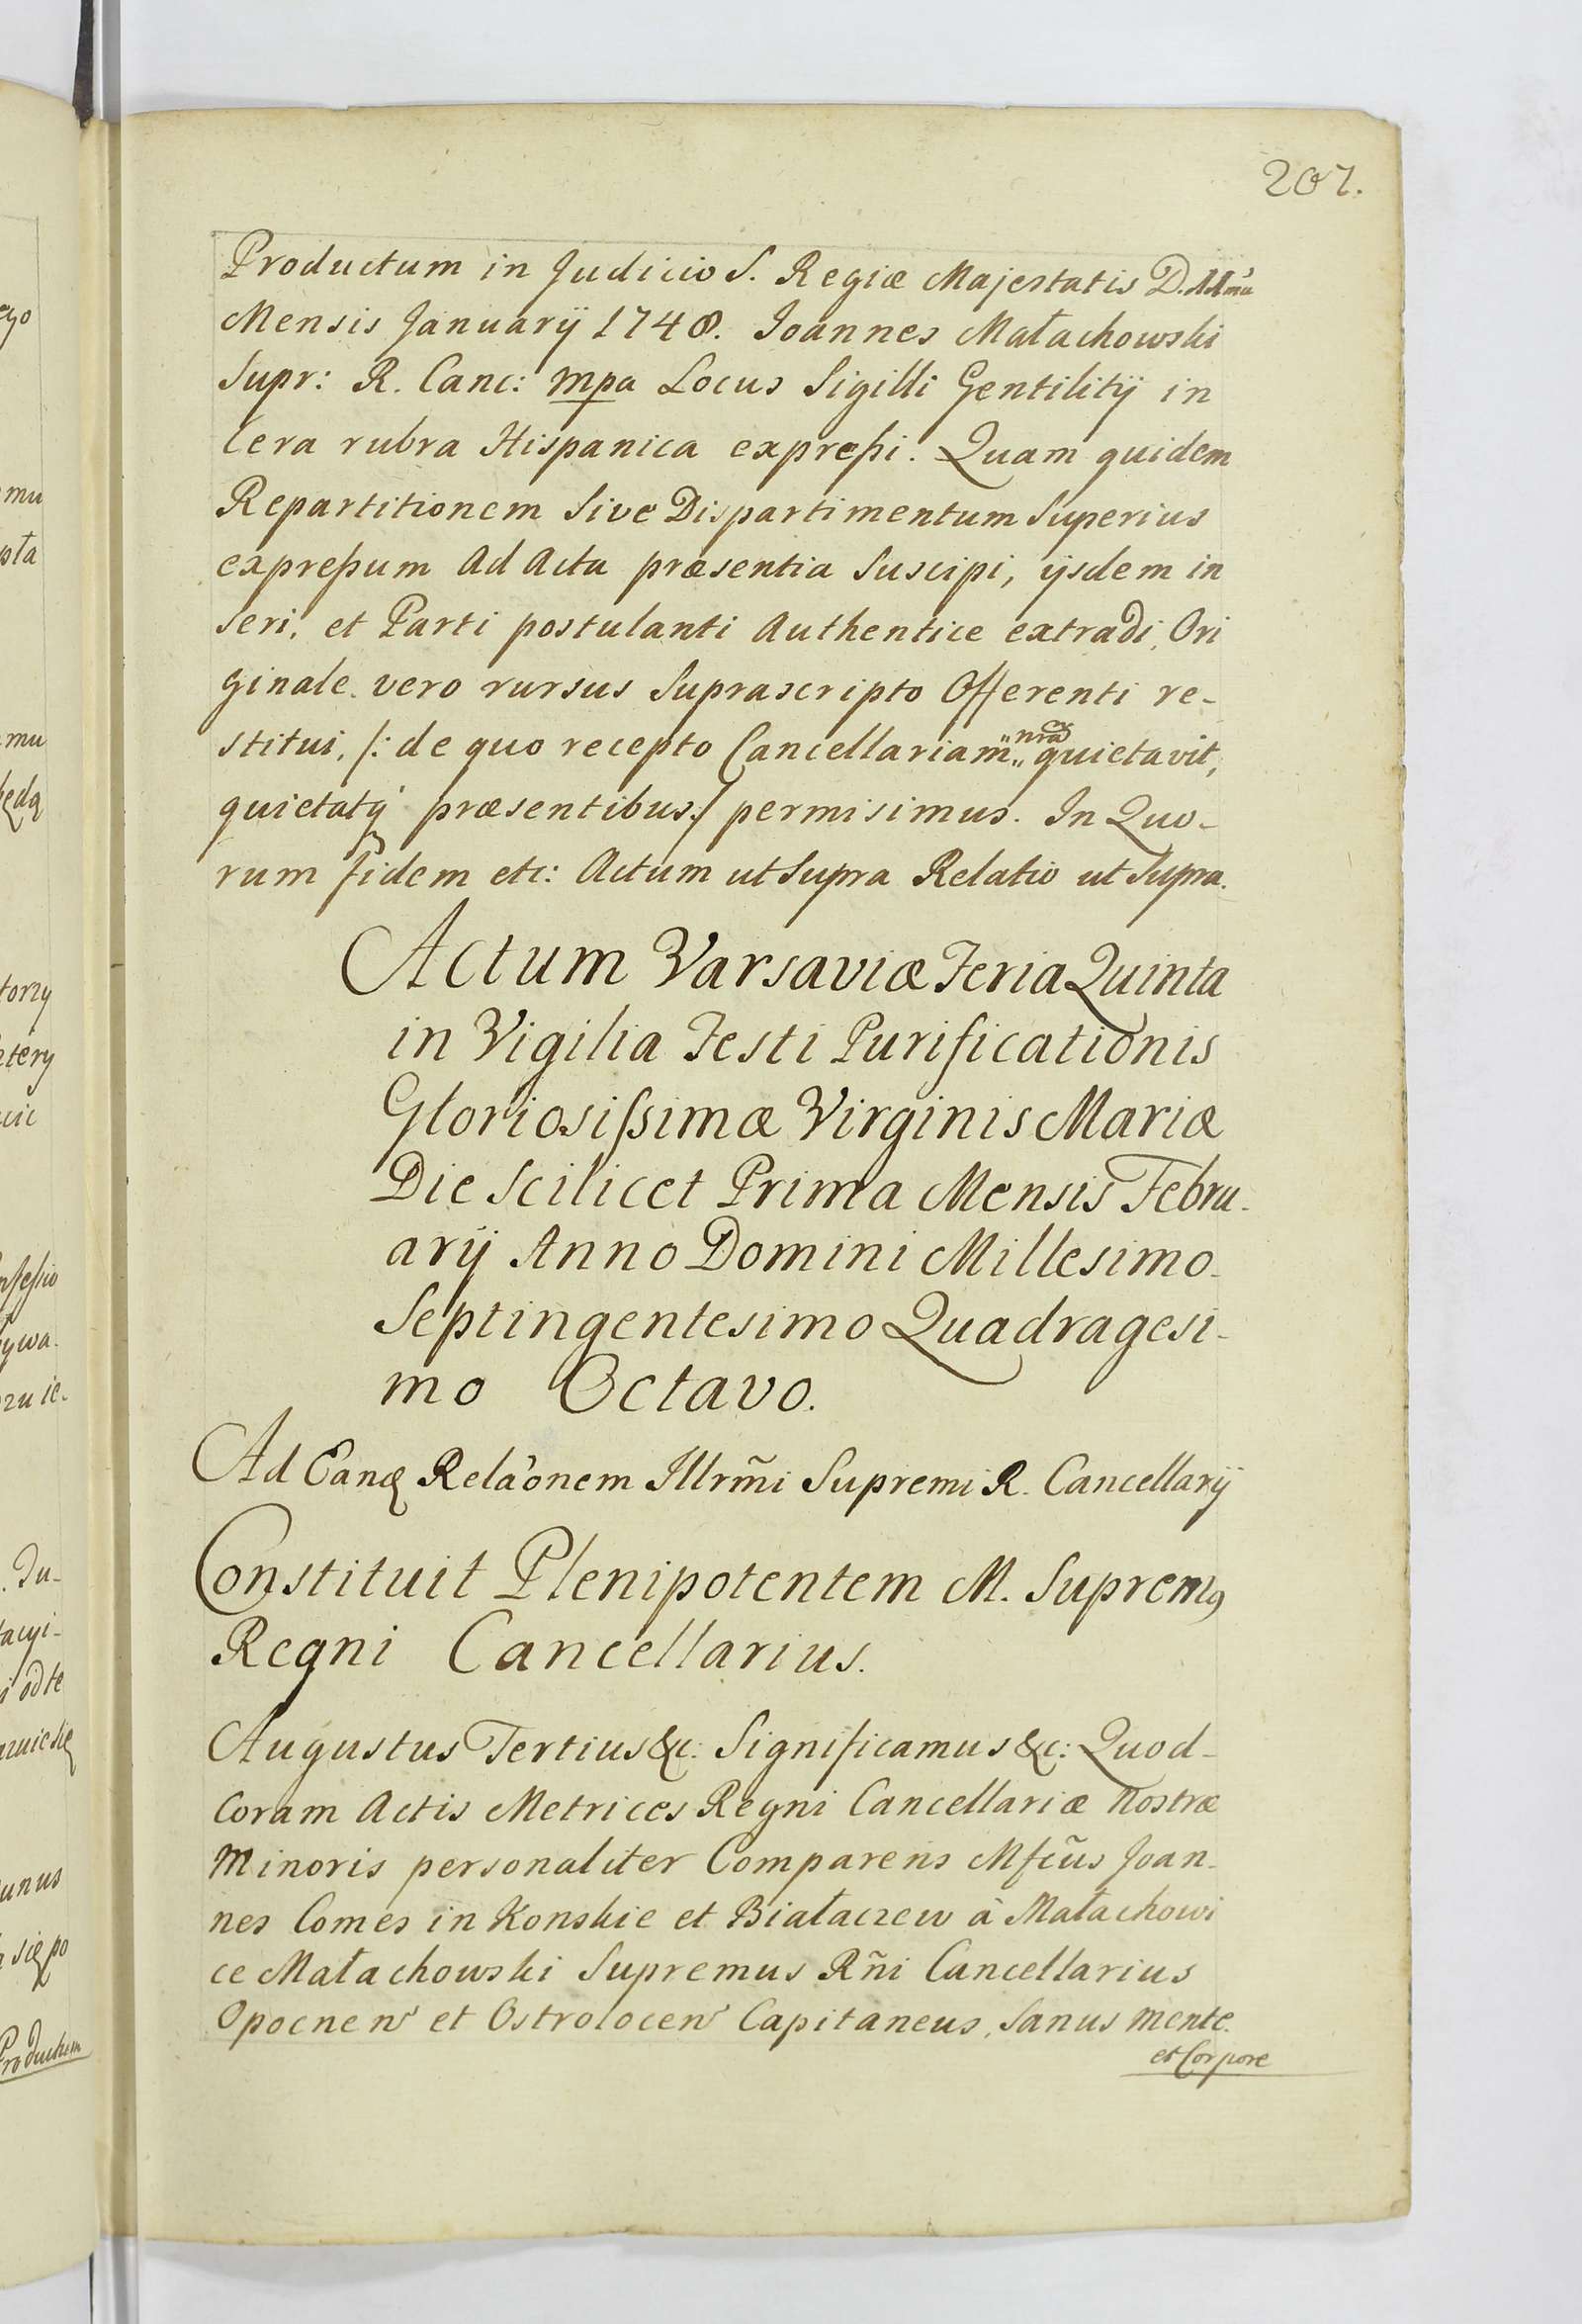 207.
Productum in Judicio S. Regiæ Majestatis D. 11mа
Mensis Januarÿ 1748. Joannes Małachowski
Supr: R. Canc: mpa Locus Sigilli Gentilitÿ in
Cera rubra Hispanica expreſsi. Quam quidem
Repartitionem Sive Dispartimentum Superius
expreſsum Ad Acta præsentia Suscipi, ÿsdem in
seri, et Parti postulanti Authentice extradi, Ori
ginale vero rursus Suprascripto Offerenti re-
stitui, /: de quo recepto Cancellariam nrã quietavit,
quietatq præsentibus :/ permisimus. In Quo-
rum fidem etc: Actum ut Supra Relatio ut Supra.
Actum Varsaviæ Feria Quinta
in Vigilia Festi Purificationis
Gloriosiſsimæ Virginis Mariæ
Die Scilicet Prima Mensis Febru-
arÿ Anno Domini Millesimo-
Septingentesimo Quadragesi-
mo Octavo.
Ad Eanđ Rela'onem Illrm̃i Supremi R. Cancellarÿ
Constituit Plenipotentem M. Supremꝰ
Regni Cancellarius.
Augustus Tertius &c: Significamus &c: Quod-
Coram Actis Metrices Regni Cancellariæ Nostræ
Minoris personaliter Comparens Mfcũs Joan-
nes Comes in Konskie et Białaczew à Małachowi
ce Małachowski Supremus Rñi Cancellarius
Opocnen' et Ostrolocen' Capitaneus, Sanus mente.
et Corpore
ego
mu
mu
torzy
Du-
odte
unus
się po
Productum